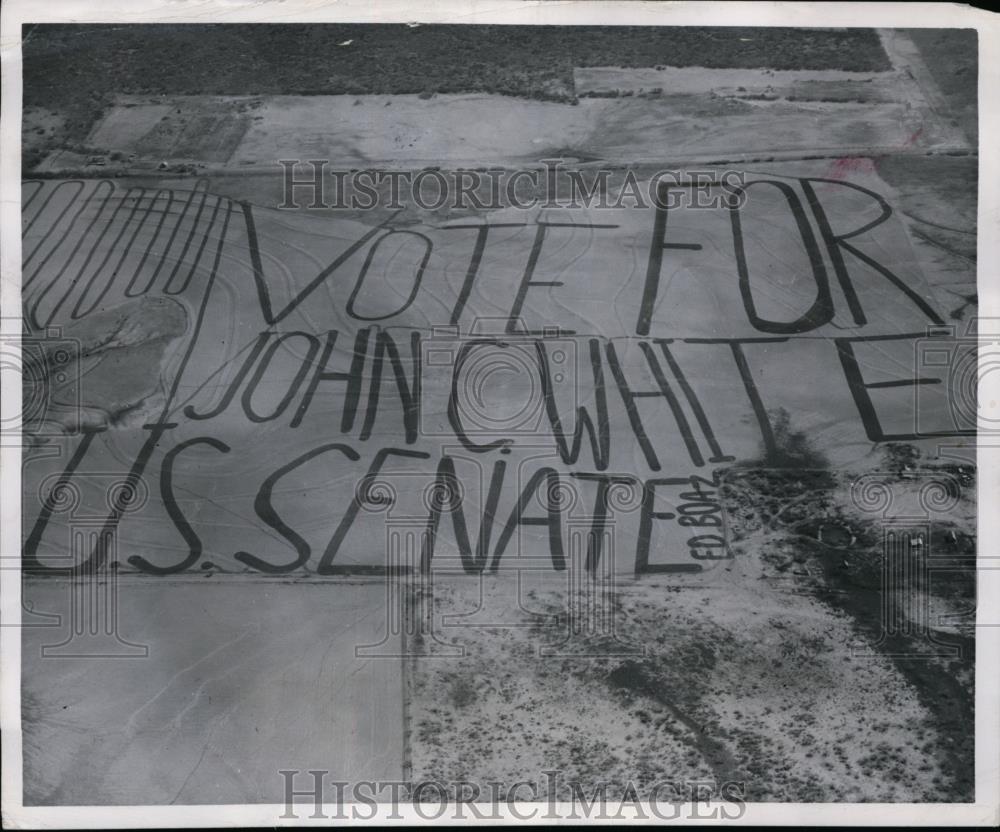 HISTORIC IMAGES
VOTE FOR
JOHN C. WHITE
U.S. SENATE
ED BOAZ
HISTORIC IMAGES